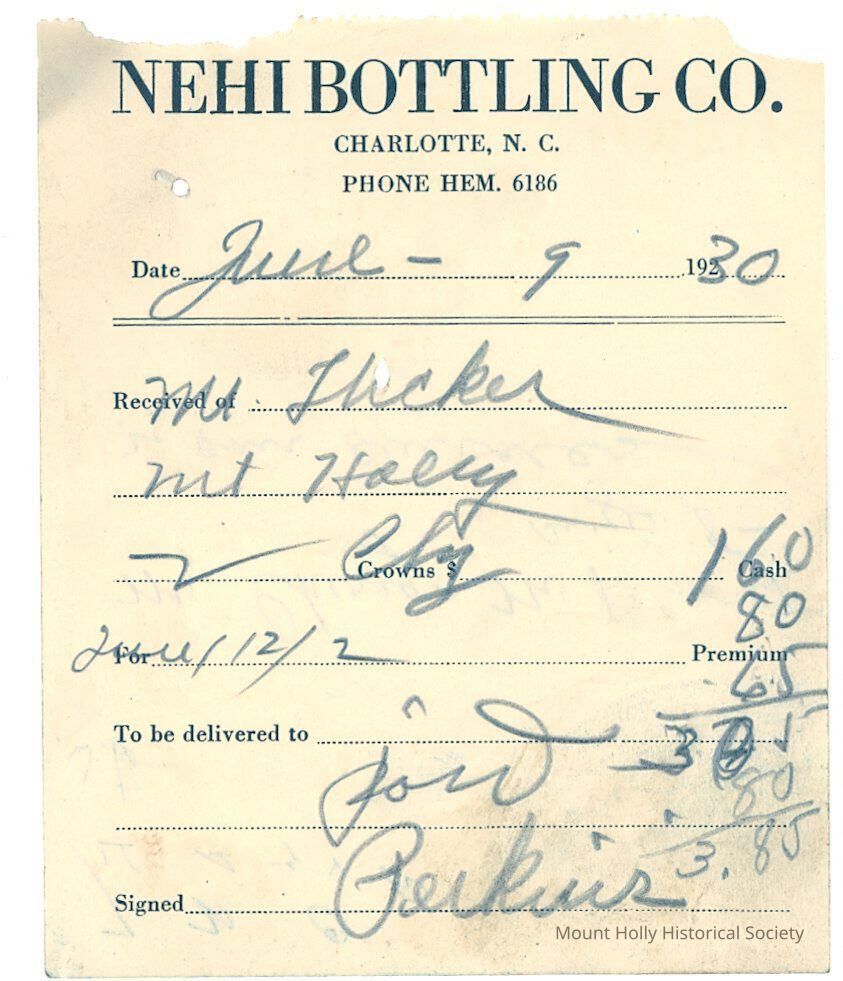 NEHI BOTTLING CO.
CHARLOTTE, N. C.
PHONE HEM. 6186
Date June - 9 192 30
Received of Mr. Tucker
Mt Holly
2 Crowns $ 1 60 Cash
80
For June 12/2 Premium
65
To be delivered to 3 05
80
paid
3.85
Signed Perkins
Mount Holly Historical Society